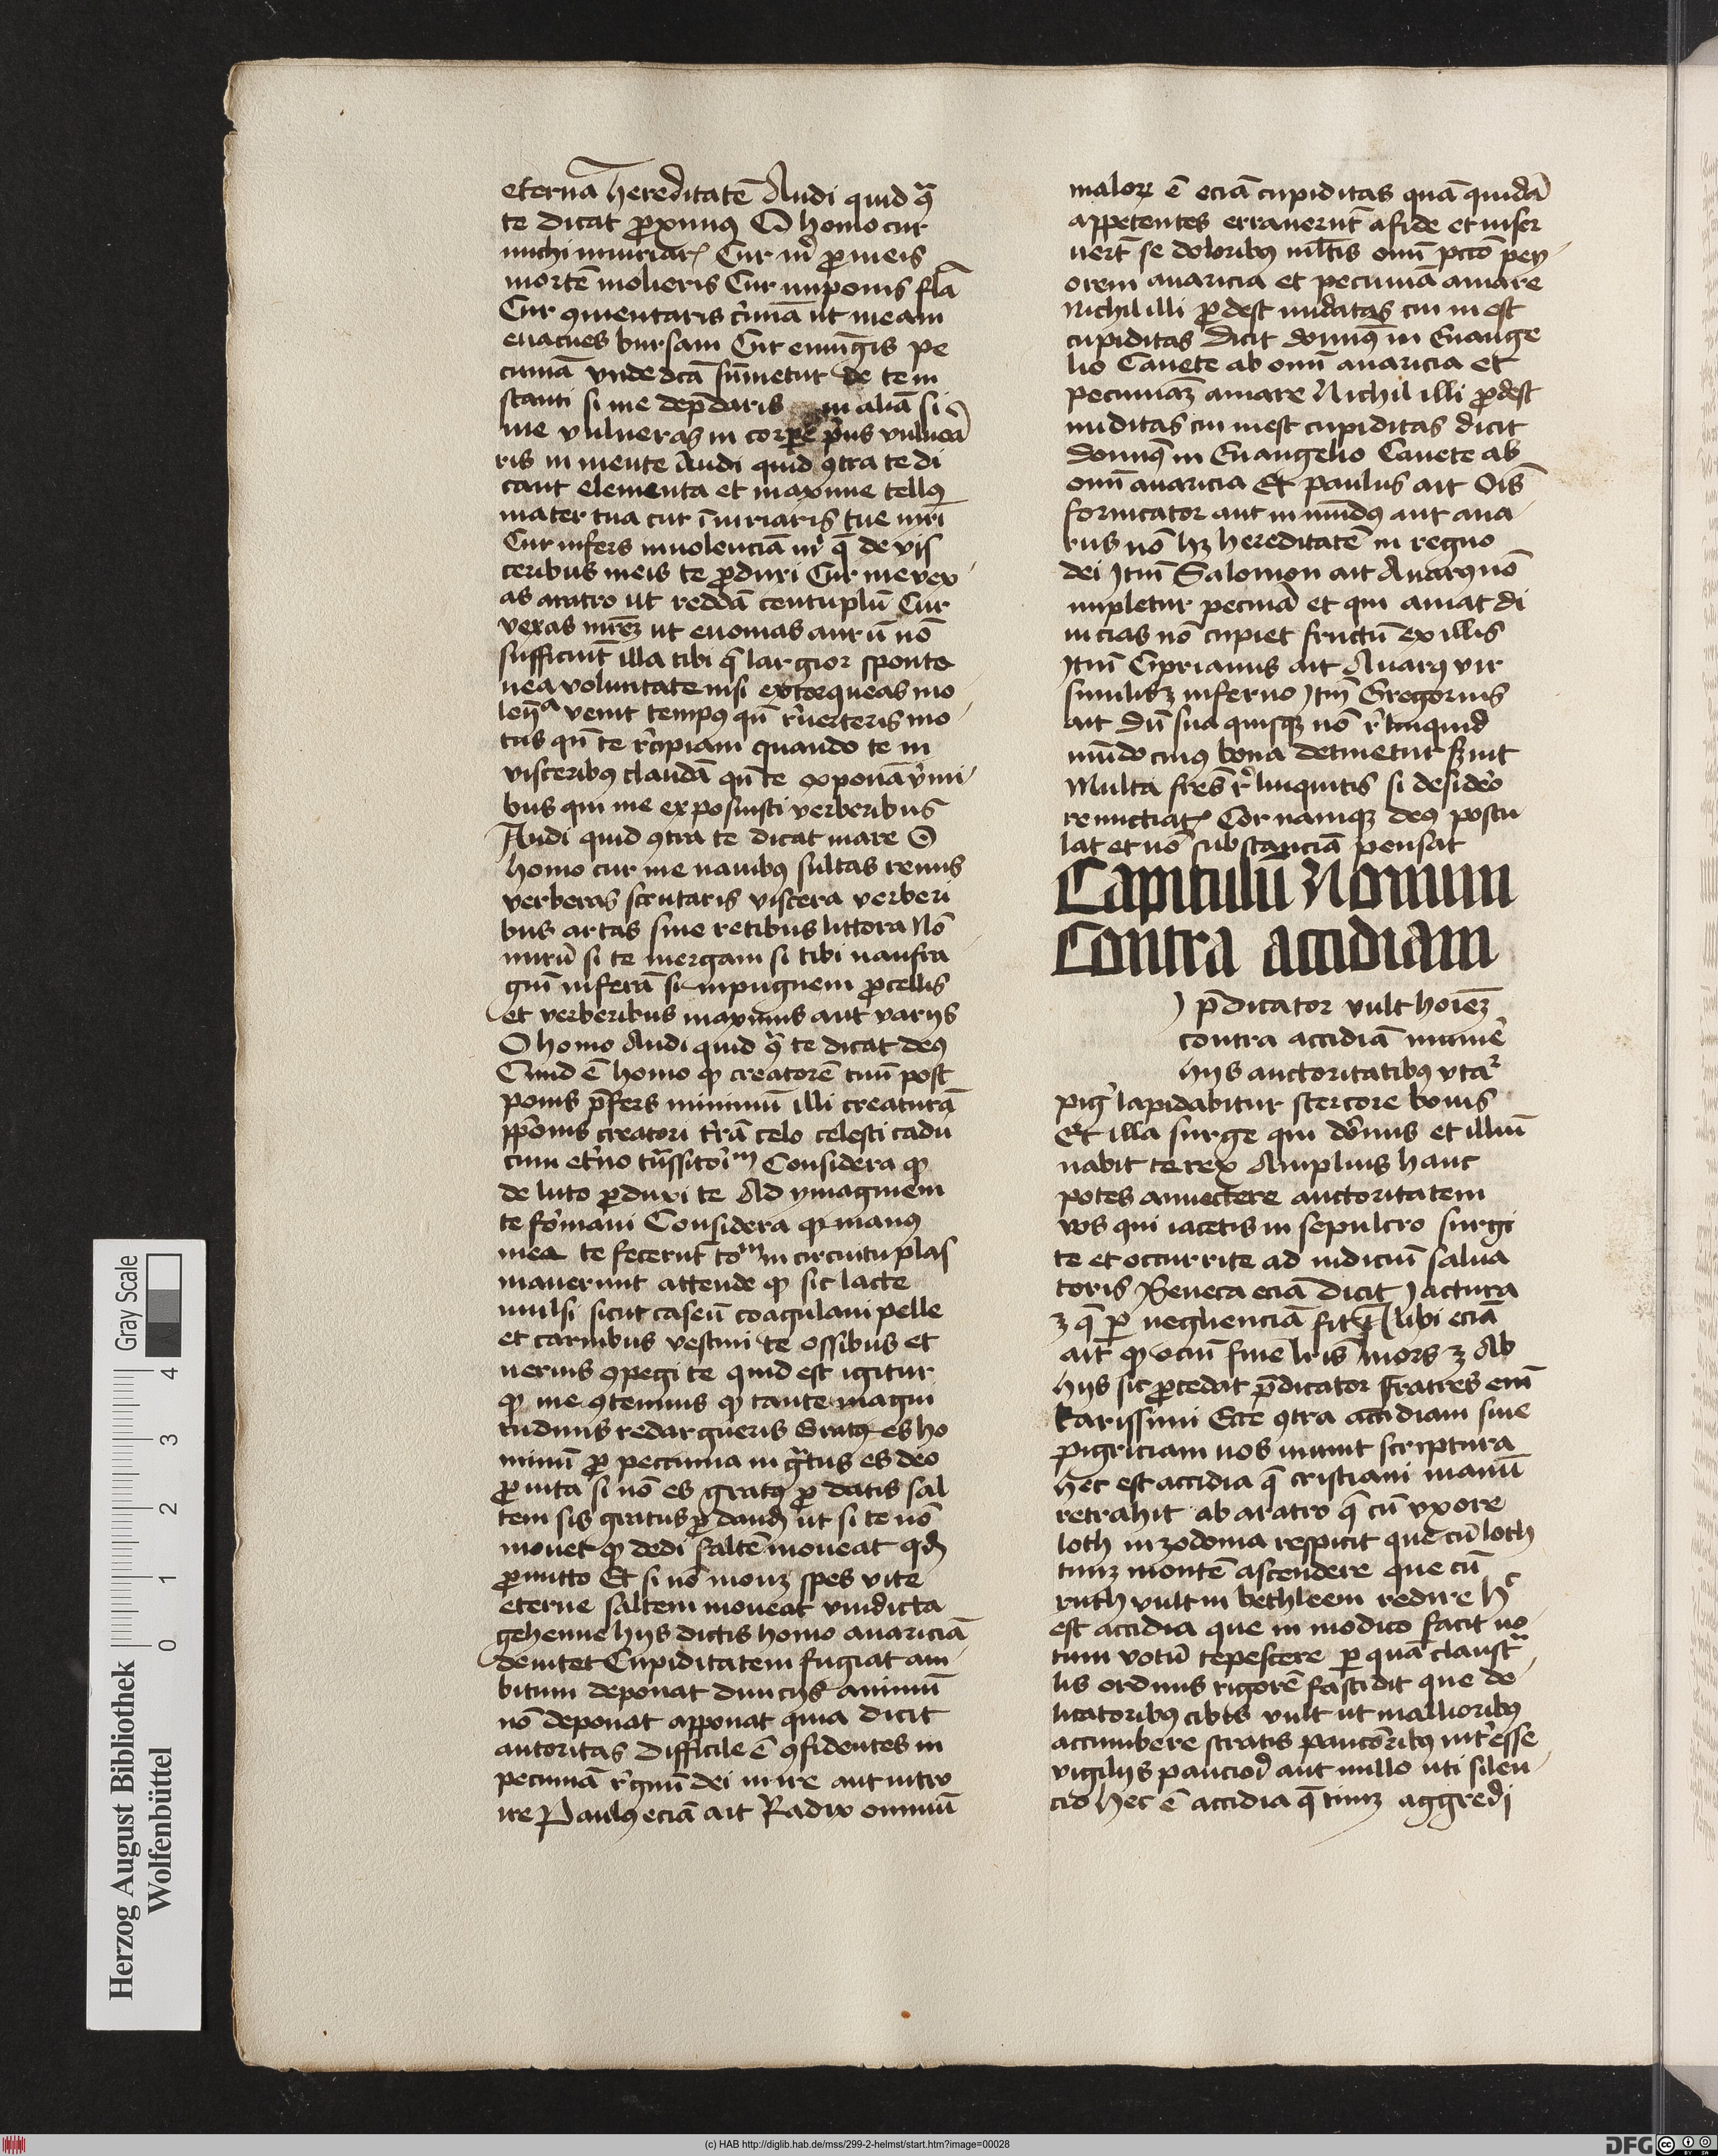 eternā hereditatē Audi quid ꝯͣ
te dicat ꝓximꝰ O homo cur
michi iniuriarꝭ Cur mͥ ꝓ meis
mortē molieris Cur imponis fla᷑
Cur ꝯmentaris cͥmiā ut meam
euacues bursam Cur emūgis pe
cuniā vnde dc̄ā sūmetur de te in
stanti si me dep̄daris in aliā si
me vulneras in corꝑe pͥus vulnea᷑
ris in mente Audi quid ꝯtra te di
cant elementa et maxime tellꝰ
mater tua cur īiuriaris tue mr̄i
Cur infers inuolenciā mͥ q̄ de vis
ceribus meis te ꝓduxi Cur me vex
as aratro ut reddā centuplū Cur
vexas mr̄eꝫ ut euomas aurū nō
sufficiūt illa tibi q̄ largior sponta
nea voluntate nisi extorqueas vio
lenͭa venit tempꝰ qn̄ rͤuerteris mo
tus qn̄ te rͤcipiam quando te in
visceribꝰ claudā qn̄ te exponā vͤmi
bus qui me exposuisti verberibus
Audi quid ꝯtra te dicat mare O
homo cur me nauibꝰ sultas remis
verberas scrutaris viscera verberi
bus artas sine retibus littora Nō
mirū si te mergam si tibi naufra
giū inferā si inpugnem ꝓcellis
et verberibus maximis aut varijs
O homo Audi quid ꝯͣ te dicat deꝰ
Quid ē homo ꝙ creatorē tuū post
ponis p̄fers minimū illi creaturā
p̄ponis creatori tͤrā celo celesti cadu
cum etͤno trͣssitoͥm Considera ꝙ
de luto ꝓduxi te Ad ymaginem
te foͬmaui Considera ꝙ manꝰ
mea te fecerūt toͭm in circuitu plas
mauerunt attende ꝙ sic lacte
mulsi sicut caseū coagulaui pelle
et carnibus vestiui te ossibus et
neruis ꝯpegi te quid est igitur
ꝙ me ꝯtemnis ꝙ tante magni
tudinis redargueris Gratꝰ es ho
minū ꝓ peccunia ingͣtus es deo
ꝓ uita si nō es gratꝰ ꝓ datis sal
tem sis gratus ꝓ dandꝭ ut si te nō
mouet ꝙ dedi saltē moueat qd̄
ꝓmitto Et si nō mouꝫ spes vite
eterne saltem moueat vindicta
gehenne hijs dictis homo auariciā
deuitet Cupiditatem fugiat am
bitum deponat diuicijs animū
nō deponat apponat quia dicit
autoritas Difficile ē ꝯfidentes in
pecuniā rͤgnū dei inire aut intro
ire Paulꝰ eciā ait Radix omniū
maloꝝ ē eciā cupiditas quā quidā
appetentes errauerūt a fide et inser
uerūt se doloribꝰ mltis omī pctō pey
orem auaricia et pecuniā amare
Nichil illi ꝓdest nuditas cui inest
cupiditas Dicit dominꝰ in Euange
lio Cauete ab omī auaricia et
pecuniaꝫ amare Nichil illi ꝓdest
nuditas cui inest cupiditas dicit
Dominꝰ in Euangelio Cauete ab
omī auaricia Et paulus ait Oīs
fornicator aut inmūdꝰ aut aua
rus nō hꝫ hereditatē in regno
dei Itm̄ Salomon ait Auarꝰ nō
impletur pecuniā et qui amat di
uicias nō cupiet fructū ex illis
Itm̄ Ciprianus ait Auarꝰ vir
similis ꝫ inferno Itm̄ Gregorius
ait Dū sua quisqꝫ nō rͤlinquid
mūdo cuiꝰ bona detinetur sꝫuit
Multa fres̄ rͤlinquitis si desidͤio
renuctiatꝭ Cor namqꝫ deꝰ postu
lat et nō substanciā pensat
Capitulū Nonum
Contra accidiam
I p̄dicator vult hoīeꝫ
contra accidiā muniͤe
hijs auctoritatibꝰ vtaͬ
pigͤ lapidabitur stercore bouis
Et illa surge qui doͬmis et illuī
nabit te rex Amplius hanc
potes annectere auctoritatem
vos qui iacetis in sepulcro surgi
te et occurrite ad iudiciū salua
toris Seneca eciā dicit Iactura
ꝫ q̄ ꝑ negligenciā fit Et Ibi eciā
ait ꝙ ociū sine lr̄is mors ꝫ Ab
hijs sic ꝓcedat p̄dicator Fratres em̄
karissimi Ecce ꝯtra accidiam siue
pigriciam uos munit scriptura
Hec est accidia q̄ cristiani manū
retrahit ab aratro q̄ cū vxore
loth in zodoma respicit que cū loth
timꝫ montē ascendere que cū
ruth vult in bethleem redire hͨ
est accidia que in modico facit uo
tum votū tepescere ꝑ quā claustͣ
lis ordinis rigorē fastidit que de
licatoribꝰ cibis vult ut mollioribꝰ
accumbere stratis paucoͥribꝰ intͤesse
vigilijs paucioͥ aut nullo uti silen
cio Hec ē accidia q̄ timꝫ aggredi
Herzog August Bibliothek
Wolfenbüttel
0 1 2 3 4
Gray Scale
(c) HAB http://diglib.hab.de/mss/299-2-helmst/start.htm?image=00028
DFG